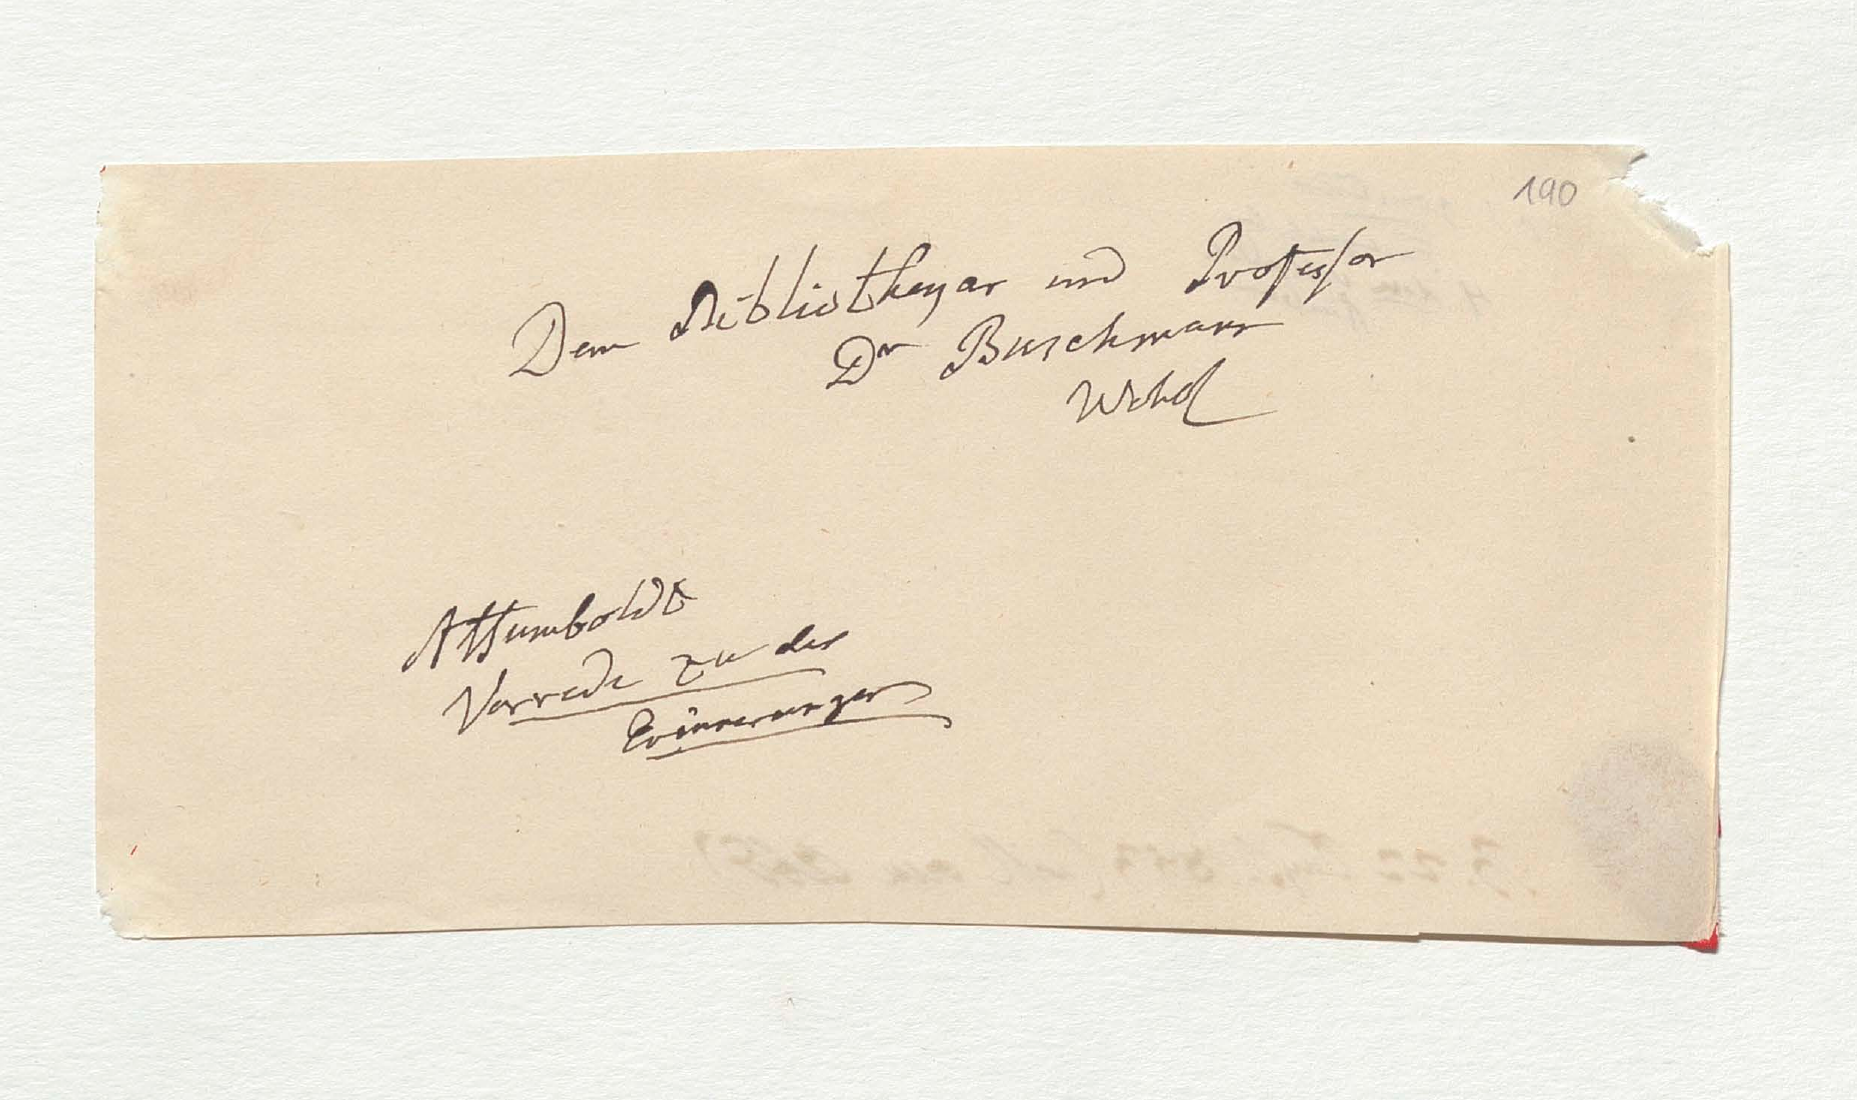 190
Dem Bibliothekar und Professor
Dr Buschmann
Wohlg
AHumboldt
Vorrede zu der
Erinnerungen